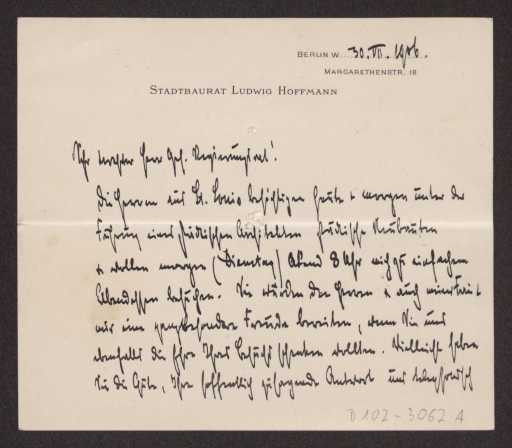 BERLIN W. 30. VII. 1906.
MARGARETHENSTR. 18
STADTBAURAT LUDWIG HOFFMANN
Sehr verehrter Herr Geh. Regierungsrat!
Die Herren aus St. Louis besichtigen heute & morgen unter der
Führung eines städtischen Architekten städtische Neubauten
& wollen morgen (Dienstag) Abend 8 Uhr mich zu einfachem
Abendessen besuchen. Sie würden den Herren & auch meiner Frau &
mir eine ganz besondere Freude bereiten, wenn Sie uns
ebenfalls die Ehre Ihres Besuchs schenken wollten. Vielleicht haben
Sie die Güte, Ihre hoffentlich zusagende Antwort uns telephonisch
D 102-3062 A